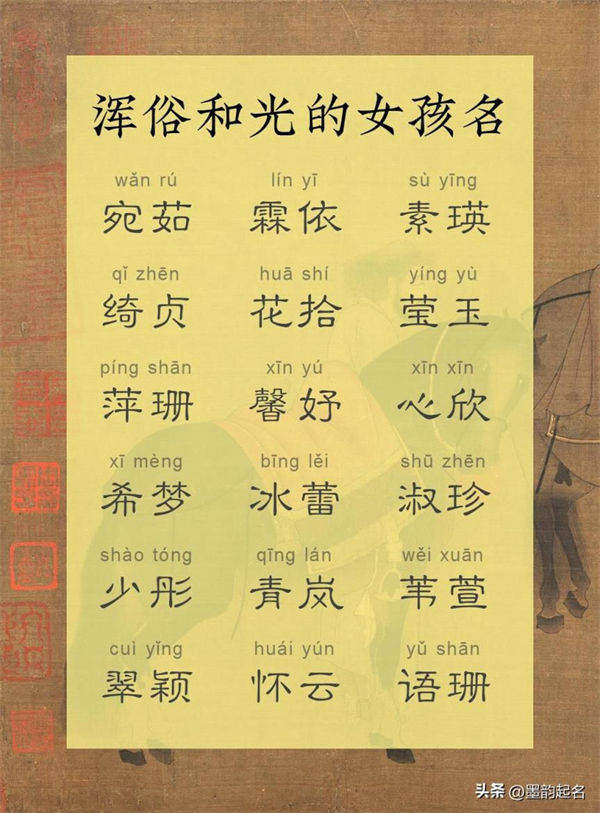 浑俗和光的女孩名
wǎn rú lín yī sù yīng
宛茹 霖依 素瑛
qǐ zhēn huā shí yíng yù
绮贞 花拾 莹玉
píng shān xīn yú xīn xīn
萍珊 馨妤 心欣
xī mèng bīng lěi shū zhēn
希梦 冰蕾 淑珍
shào tóng qīng lán wěi xuān
少彤 青岚 苇萱
cuì yǐng huái yún yǔ shān
翠颖 怀云 语珊
头条 @墨韵起名